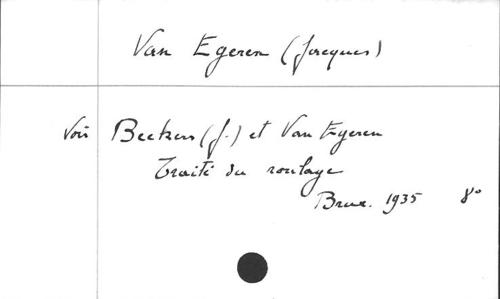 Van Egeren (Jacques)
Voir Beckers (J.) et Van Egeren
Traité du roulage
Brux. 1935 8°